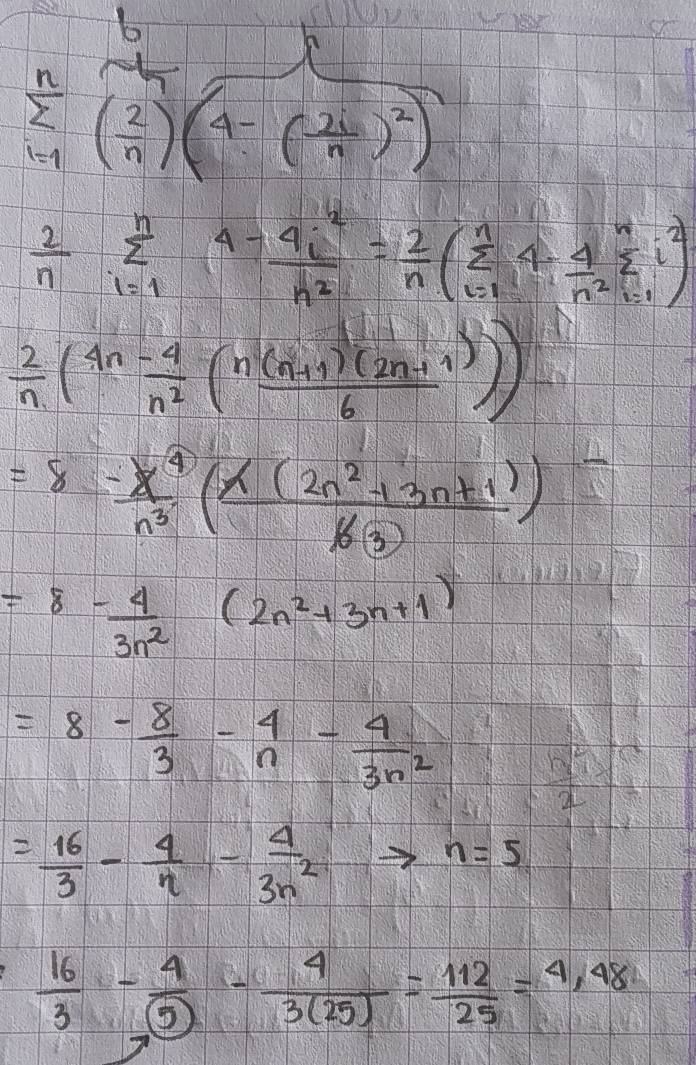 b h
n
Σ (2/n) (4 - (2i/n)²)
i=1
2/n Σⁿᵢ₌₁ 4 - 4i²/n² = 2/n (Σⁿᵢ₌₁ 4 - 4/n² Σⁿᵢ₌₁ i²)
2/n (4n - 4/n² (n(n+1)(2n+1)/6))
= 8 - 8 4/n³ (n(2n²+3n+1)/6 3)
= 8 - 4/3n² (2n²+3n+1)
= 8 - 8/3 - 4/n - 4/3n²
= 16/3 - 4/n - 4/3n² → n = 5
16/3 - 4/5 - 4/3(25) = 112/25 = 4,48